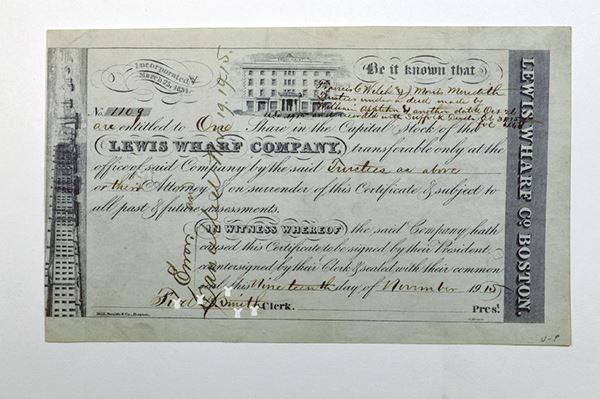 Incorporated
March 25, 1834.
Be it known that
Francis C Welch & J Morris Meredith
Trustees under a deed made by
William Appleton & another dated Oct 21
No. 1109
are entitled to One Share in the Capital Stock of the
LEWIS WHARF COMPANY, transferable only at the
office of said Company by the said Trustees as above
or their Attorney on surrender of this Certificate & subject to
all past & future assessments.
IN WITNESS WHEREOF the said Company hath
caused this Certificate to be signed by their President,
countersigned by their Clerk & sealed with their common
seal this Nineteenth day of November 1915
Smith Clerk. Pres!
LEWIS WHARF CO. BOSTON.
Cancelled Nov 19. 1915.
U-P